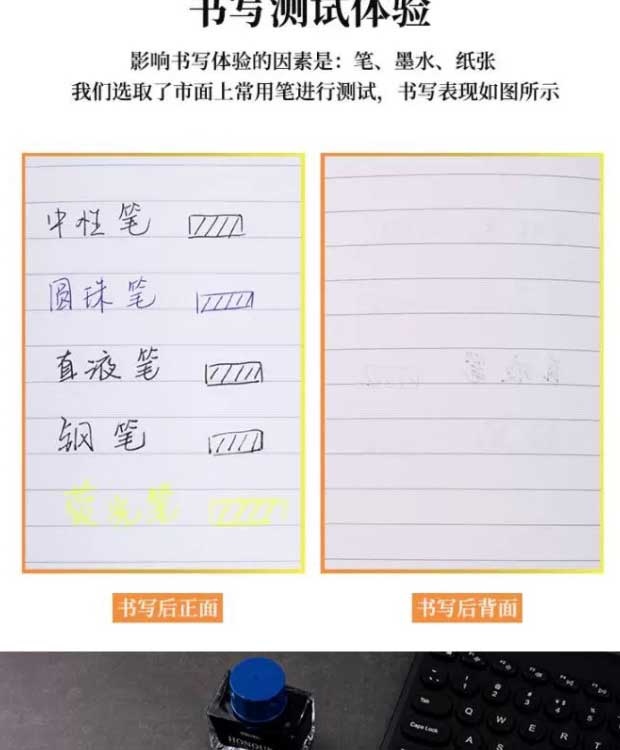 书写测试体验
影响书写体验的因素是：笔、墨水、纸张
我们选取了市面上常用笔进行测试，书写表现如图所示
中性笔
圆珠笔
直液笔
钢笔
荧光笔
直液笔
书写后正面
书写后背面
HONOUR
Tab
Q
W
E
R
Caps Lock
A
S
D